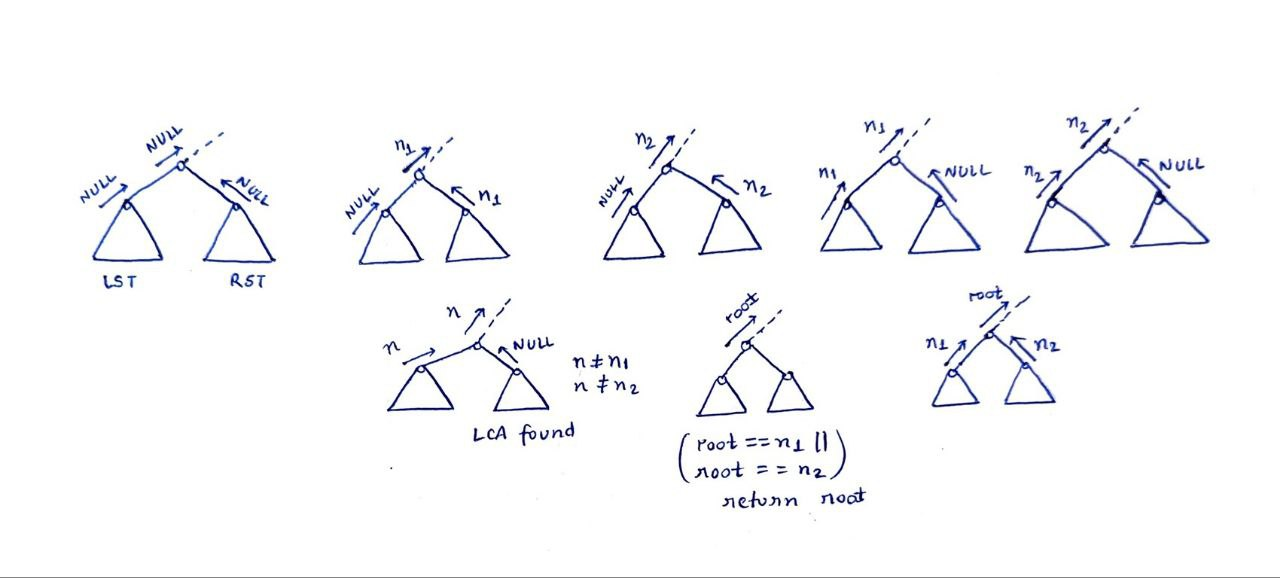 NULL
NULL
NULL
LST
RST
n1
NULL
n1
n2
NULL
n2
n1
n1
NULL
n2
n2
NULL
n
n
NULL
n ≠ n1
n ≠ n2
LCA found
root
(root == n1 ||
root == n2)
return root
root
n1
n2